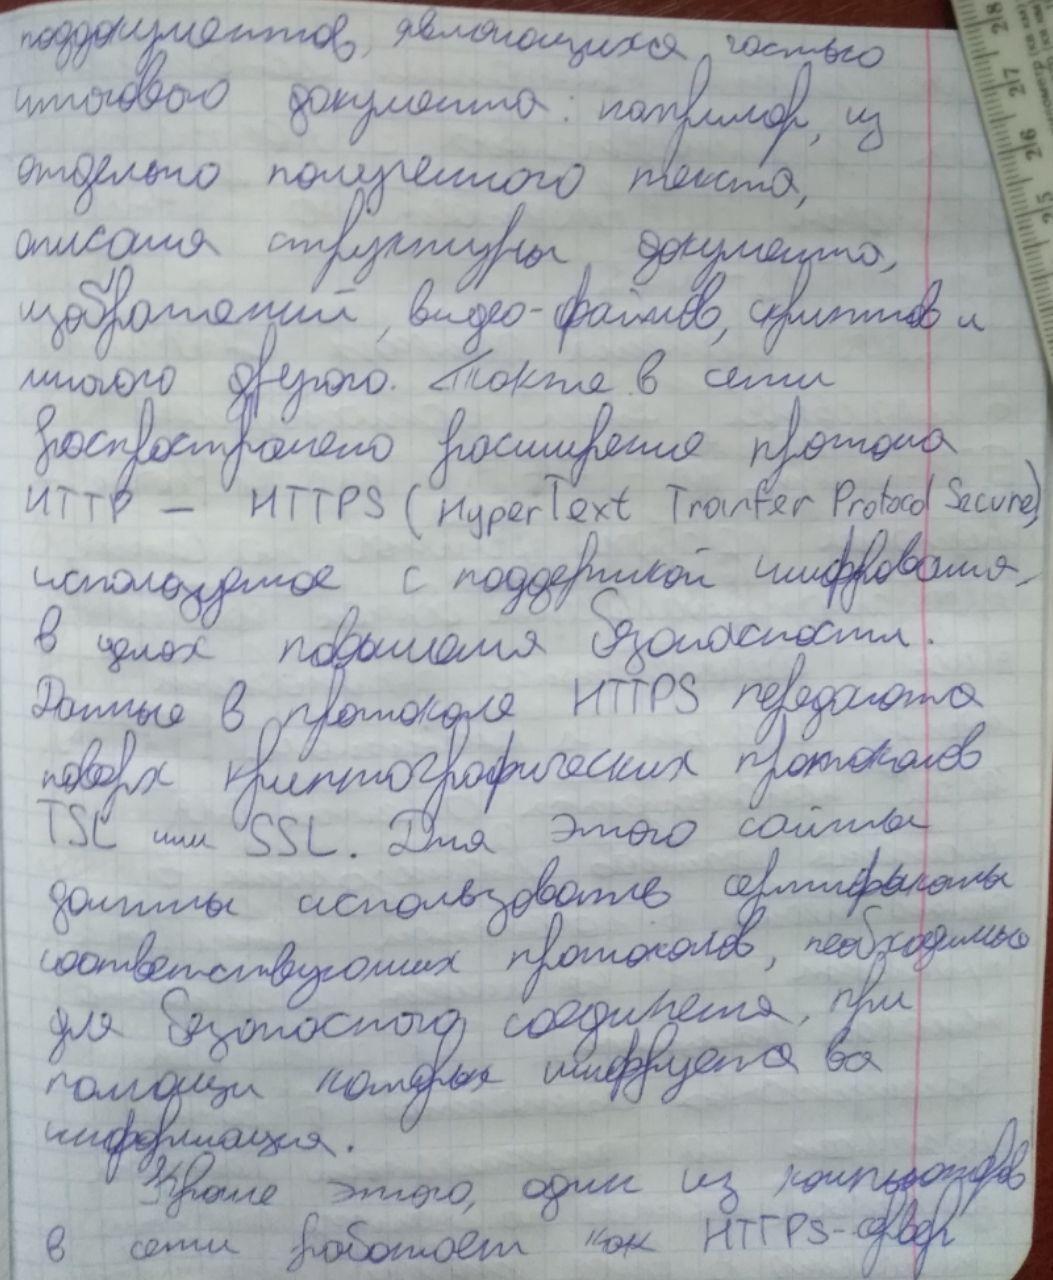 поддокументов, являющихся частью
итогового документа: например, из
отдельно полученного текста,
описания структуры документа,
изображений, видео-файлов, скриптов и
многого другого. Также в сети
распространено расширение протокола
HTTP – HTTPS (HyperText Tranfer Protocol Secure)
используемое с поддержкой шифрования,
в целях повышения безопасности.
Данные в протоколе HTTPS передаются
поверх криптографических протоколов
TSL или SSL. Для этого сайты
должны использовать сертификаты
соответствующих протоколов, необходимые
для безопасного соединения, при
помощи которых шифруется вся
информация.
Кроме этого, один из компьютеров
в сети работает как HTTPS-сервер
25 26 27 28